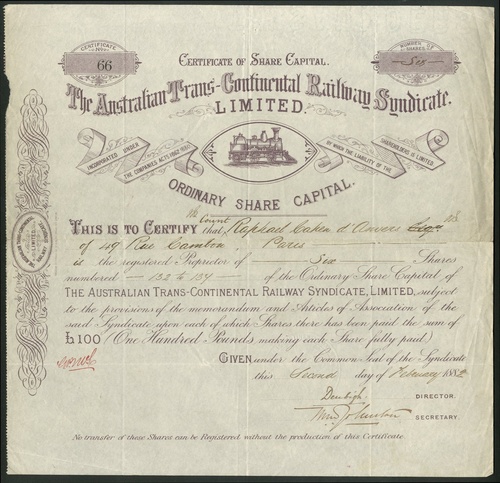 CERTIFICATE
No.
66
CERTIFICATE OF SHARE CAPITAL.
NUMBER OF
Six
The Australian Trans-Continental Railway Syndicate.
LIMITED.
INCORPORATED UNDER
THE COMPANIES ACTS
BY WHICH THE LIABILITY OF THE
SHAREHOLDERS IS LIMITED
ORDINARY SHARE CAPITAL.
THIS IS TO CERTIFY that Count Raphael Cahen d'Anvers
of 49 Rue Cambon Paris
is the registered Proprietor of Six Shares
numbered 132 to 137 of the Ordinary Share Capital of
THE AUSTRALIAN TRANS-CONTINENTAL RAILWAY SYNDICATE, LIMITED, subject
to the provisions of the memorandum and Articles of Association of the
said Syndicate upon each of which Shares there has been paid the sum of
£100 (One Hundred Pounds making each Share fully paid)
GIVEN under the Common Seal of the Syndicate
this Second day of February
Denbigh DIRECTOR.
SECRETARY.
No transfer of these Shares can be Registered without the production of this Certificate.